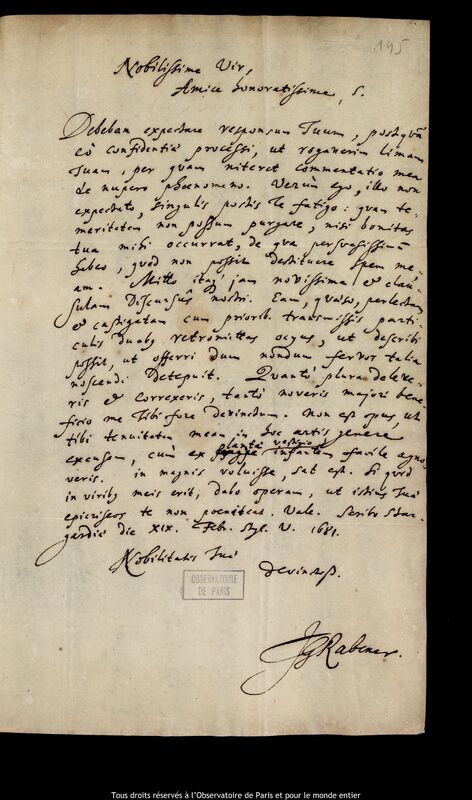 195
Nobilissime Vir,
Amice honoratissime, S.
Debebam expectare responsum Tuum, postquã
eò confidentiæ processi, ut rogaverim limam
Tuam, per quam niteret commentatio mea
de nupero phoenomeno. Verùm ego, illo non
expectato, singulis postis Te fatigo: quam te-
meritatem non possum purgare, nisi bonitas
tua mihi occurrat, de qua persuasissimũ
habeo, quòd non possit destituere spem me-
am. Mitto itaq; jam novissima et clau-
sulam Discursûs nostri. Eam, quæso, perlectam
et castigatam cum priorib. transmissis parti-
culis duab. retromittas ocyus, ut describi
possit, ut offerri dum nondum fervor talia
noscendi detepuit. Quantò plura deleve-
ris et correxeris, tantò noveris majori bene-
ficio me Tibi fore devinctum. Non est opus, ut
tibi tenuitatem meam in hoc artis genere
excusem, cùm ex plantæ vestigio infantem facile agno-
veris. in magnis voluisse, sat est. Si quid
in virib. meis erit, dabo operam, ut istius Tuæ
epicriseos te non poeniteat. Vale. Scribo Star-
gardiæ die XIX. Feb. Styl. V. 1681.
Nobilitatis Tuæ
devinctiss.
OBSERVATOIRE
DE PARIS
JGRabener.
Tous droits réservés à l'Observatoire de Paris et pour le monde entier